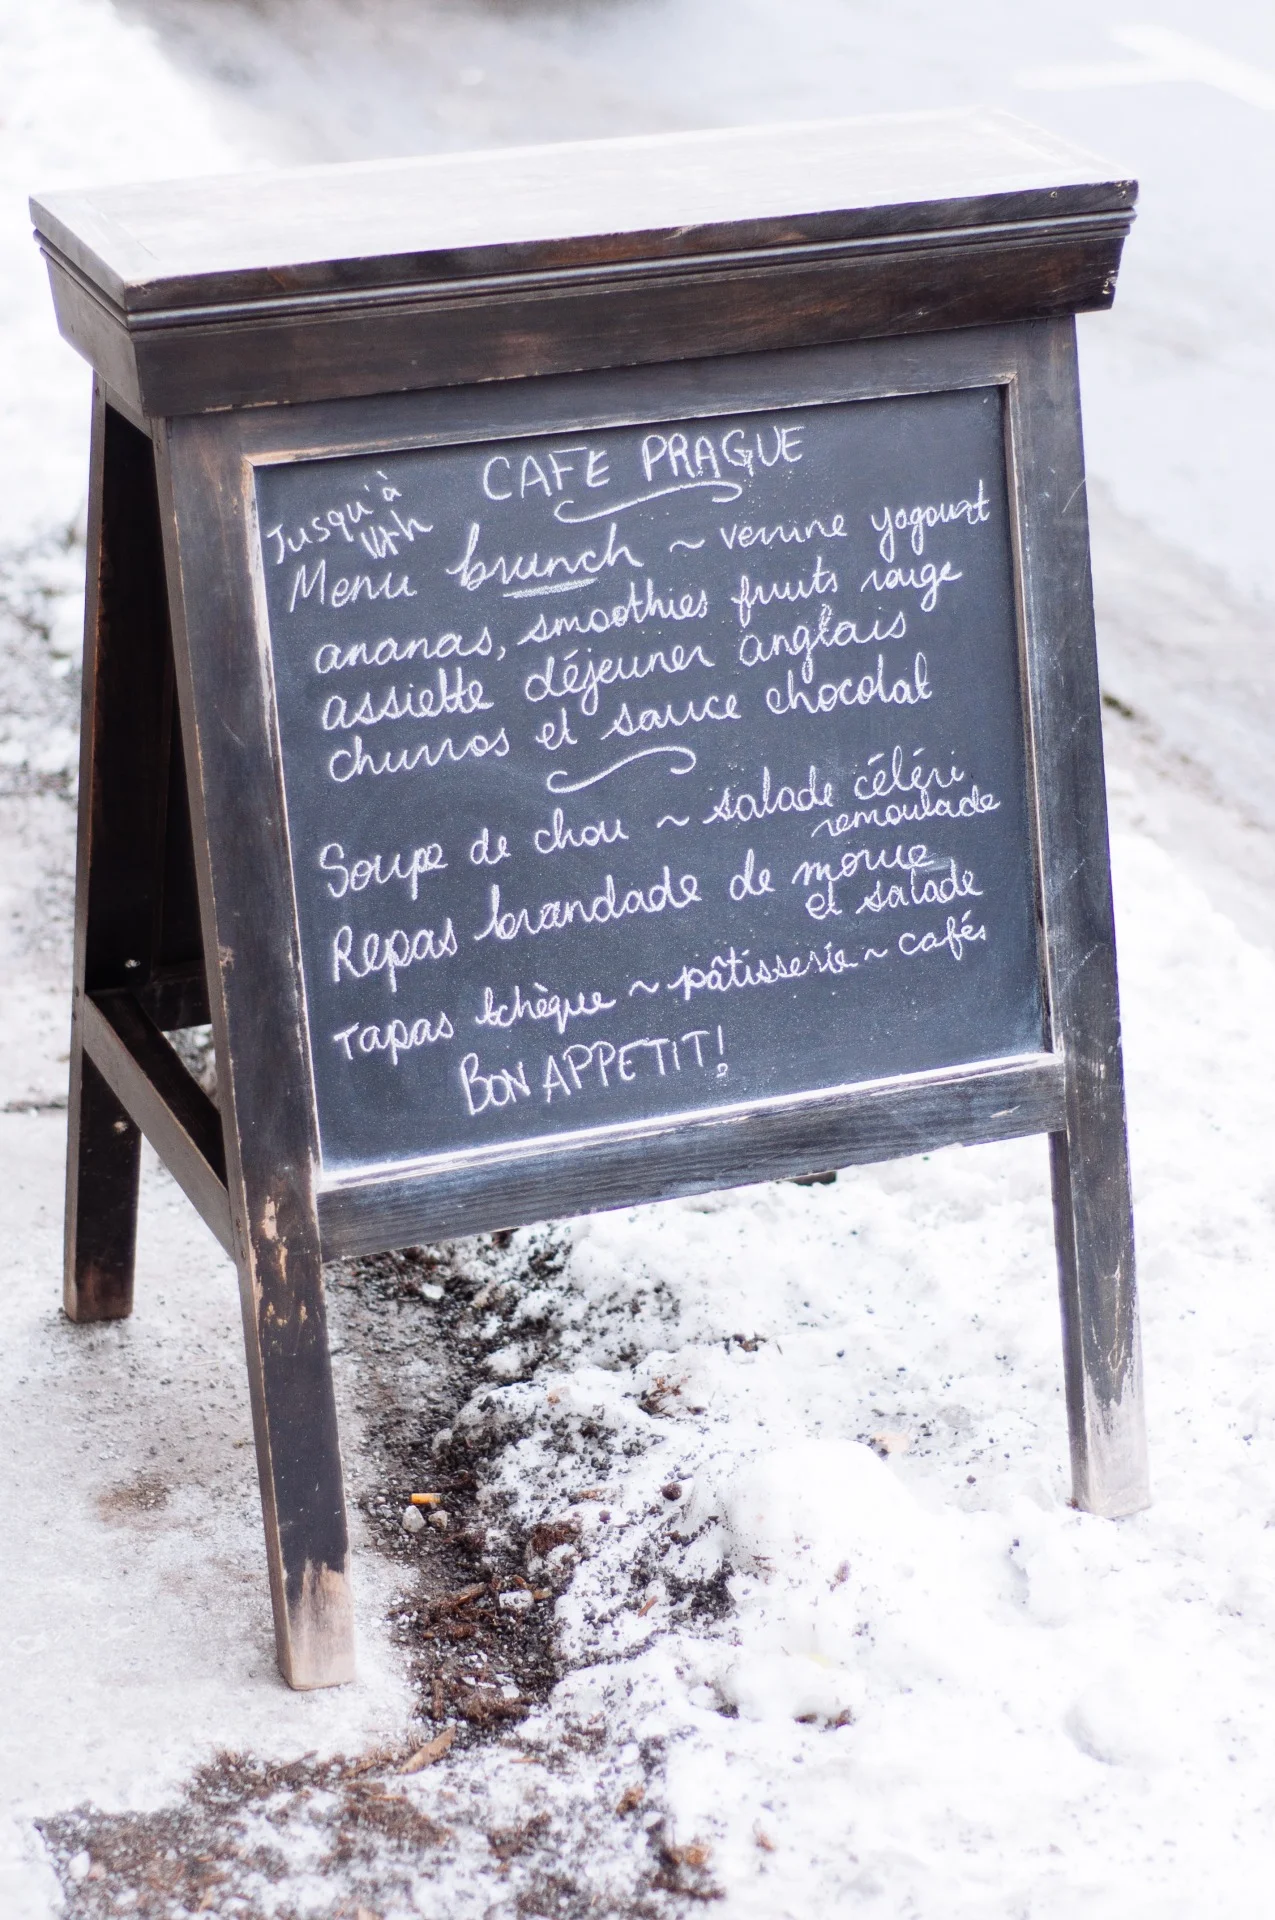 CAFE PRAGUE
Jusqu'à
14h
Menu brunch ~ verrine yogourt
ananas, smoothies fruits rouge
assiette déjeuner anglais
churros et sauce chocolat
Soupe de chou ~ salade céléri
remoulade
Repas brandade de morue
et salade
Tapas tchèque ~ pâtisserie ~ cafés
BON APPETIT!